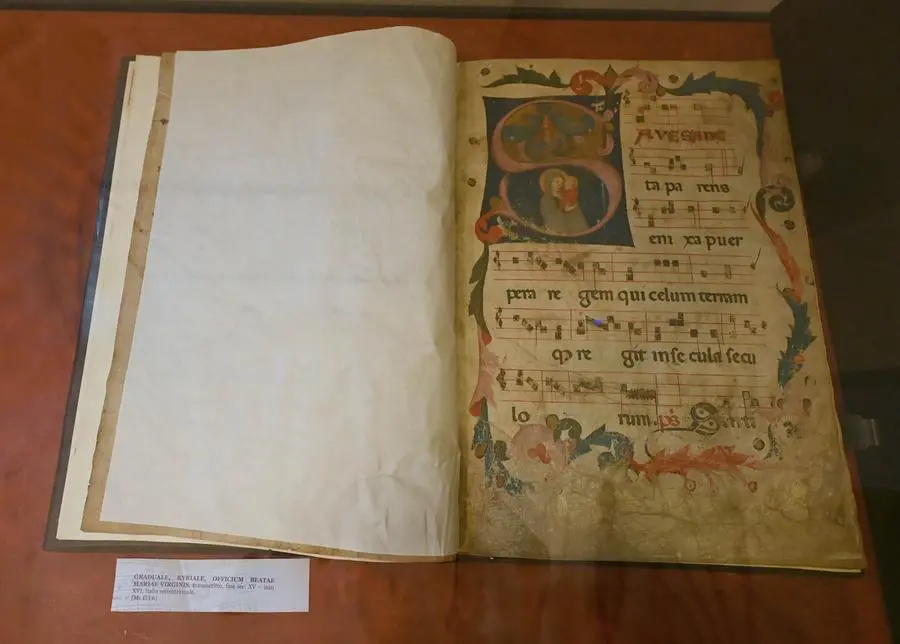 AVE SANC
ta pa rens
eni xa puer
pera re gem qui celum terram
qꝫ re git in se cula secu
lo rum. ps
GRADUALE, KYRIALE, OFFICIUM BEATAE
MARIAE VIRGINIS, manoscritto, fine sec. XV – inizi
XVI, Italia settentrionale.